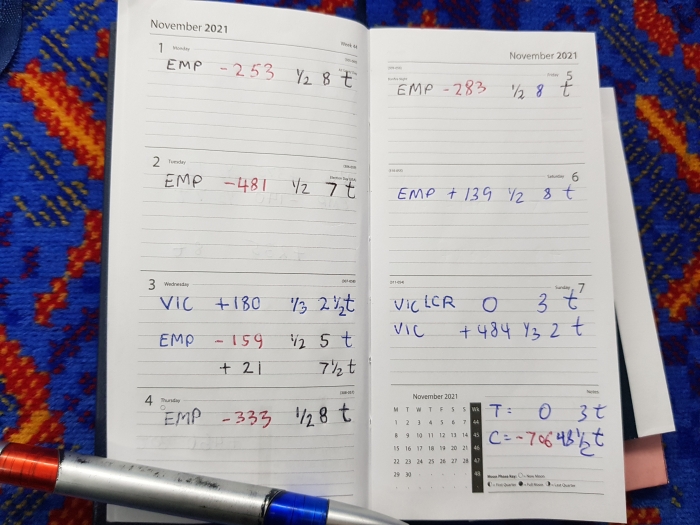 November 2021
Week 44
1 Monday
EMP -253 1/2 8 t
2 Tuesday
EMP -481 1/2 7 t
3 Wednesday
VIC +180 1/3 2 1/2 t
EMP -159 1/2 5 t
+ 21 7 1/2 t
4 Thursday
EMP -333 1/2 8 t
November 2021
Friday 5
EMP -283 1/2 8 t
Saturday 6
EMP + 139 1/2 8 t
Sunday 7
VIC LCR 0 3 t
VIC + 484 1/3 2 t
Notes
November 2021
M T W T F S S Wk
1 2 3 4 5 6 7 44
8 9 10 11 12 13 14 45
15 16 17 18 19 20 21 46
22 23 24 25 26 27 28 47
29 30 48
T: 0 3 t
C = -706 48 1/2 t
Moon Phase Key: New Moon
First Quarter Full Moon Last Quarter